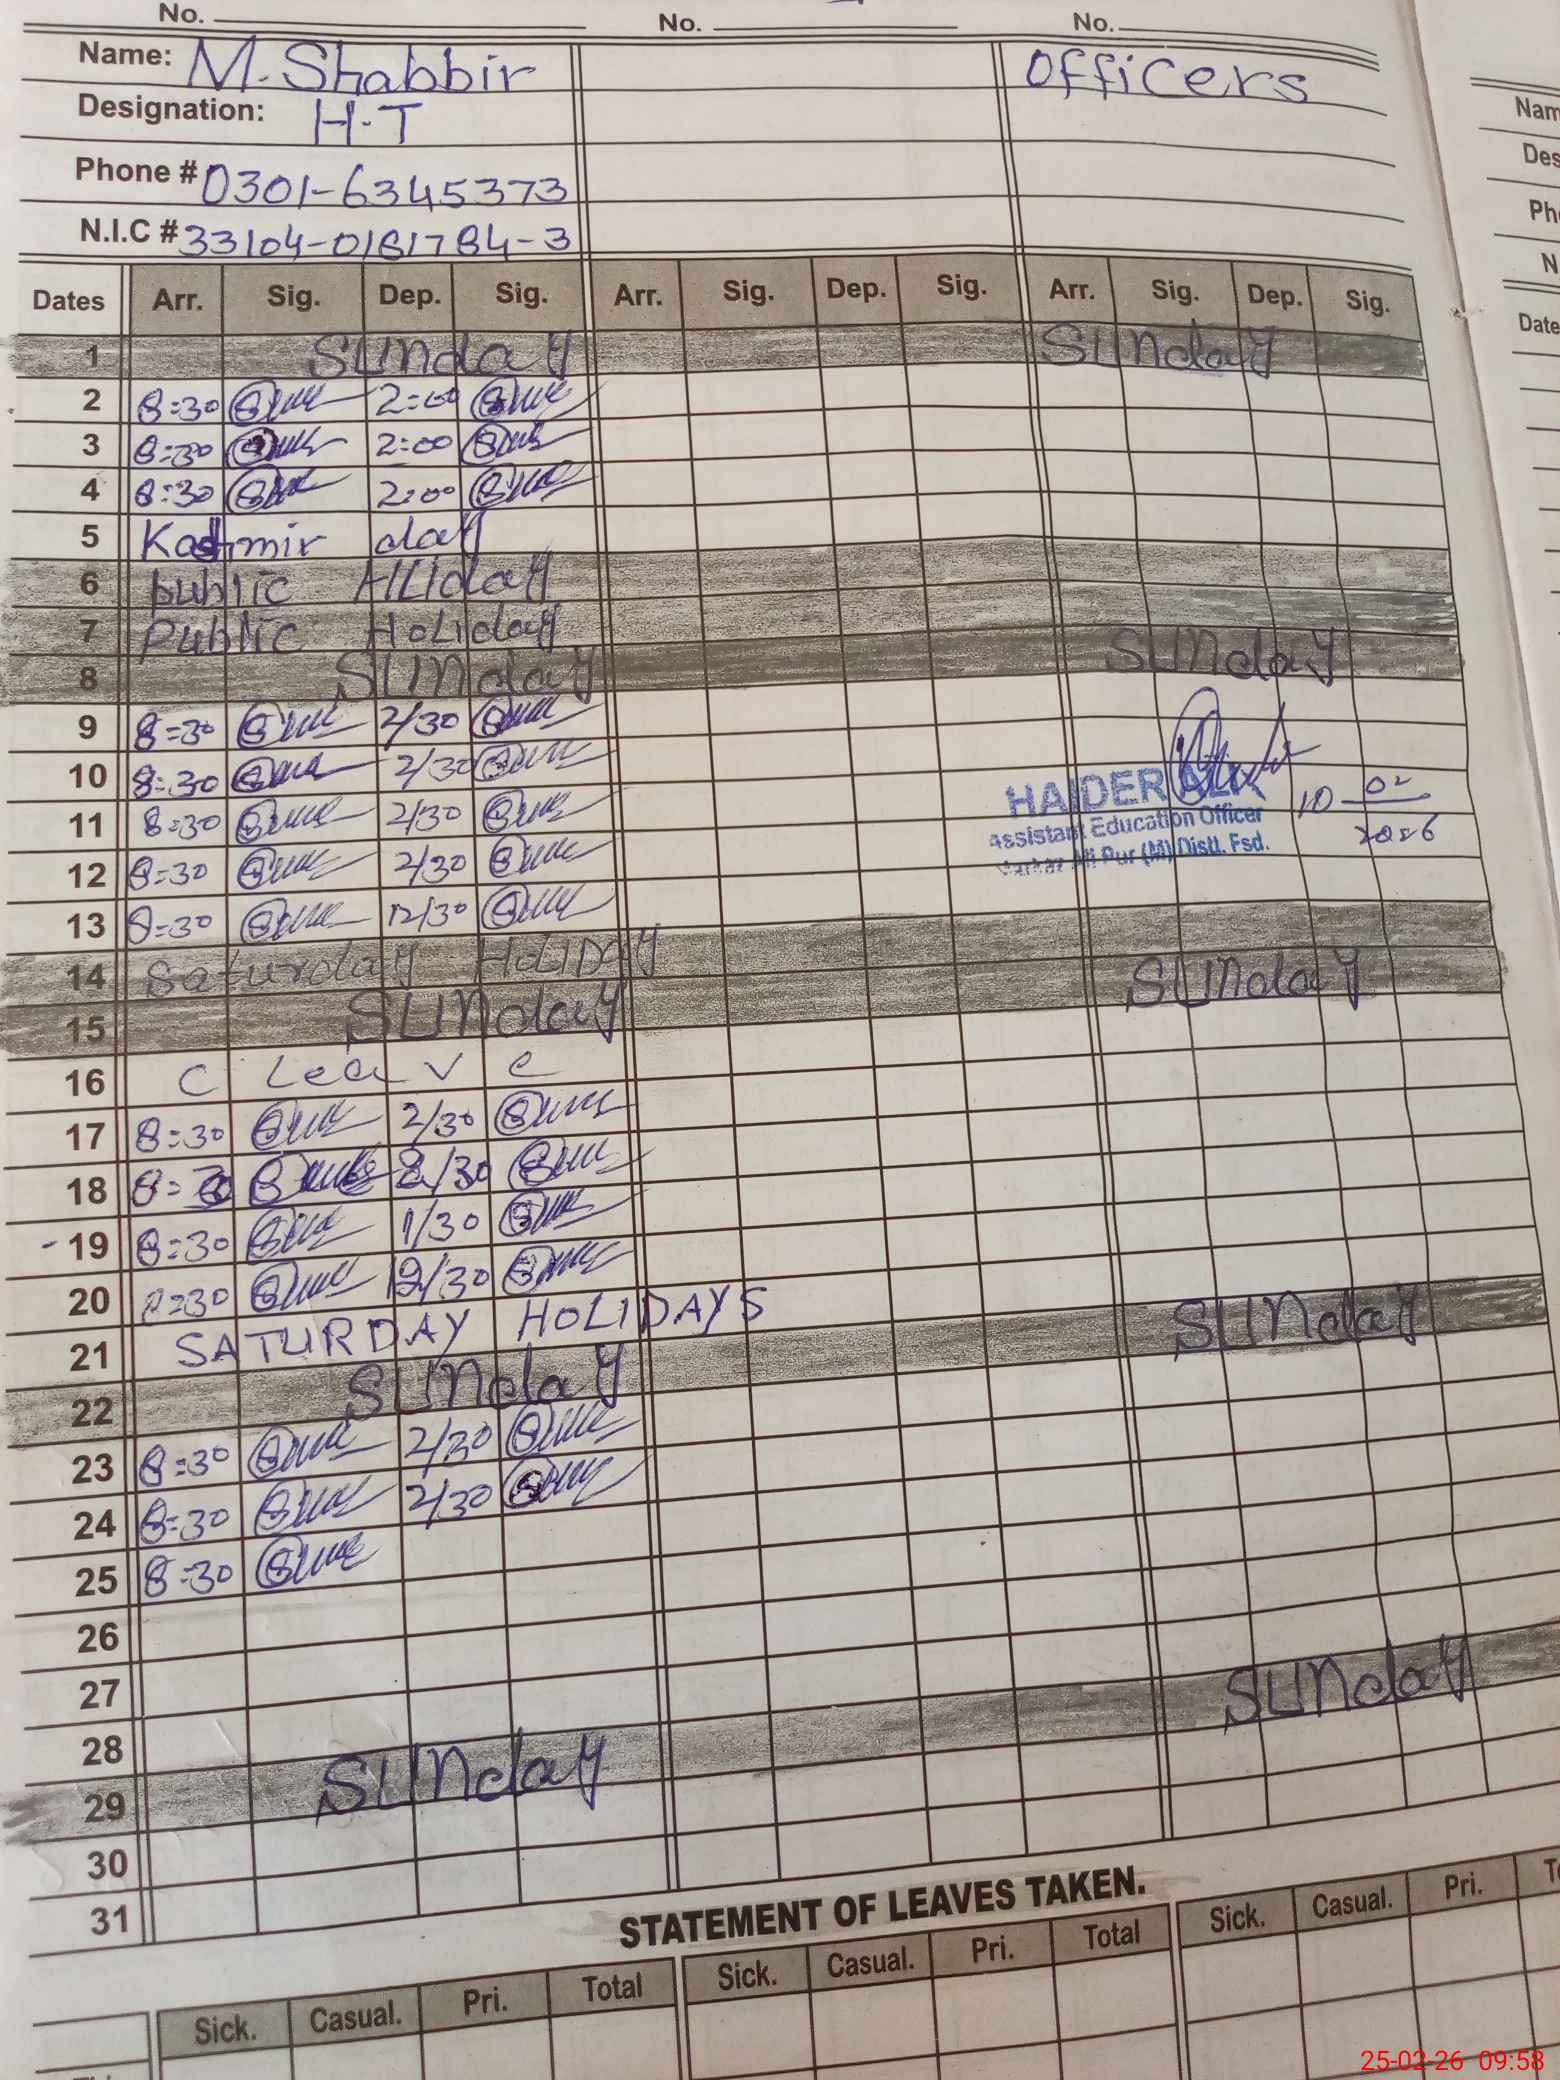 No. No. No.
Name: M. Shabbir Officers
Designation: H.T
Phone # 0301-6345373
N.I.C # 33104-0181784-3
Dates Arr. Sig. Dep. Sig. Arr. Sig. Dep. Sig. Arr. Sig. Dep. Sig.
1 Sunday Sunday
2 8:30 2:00
3 8:30 2:00
4 8:30 2:00
5 Kashmir day
6 public HLiday
7 Public Holiday
8 Sunday Sunday
9 8=30 2/30
10 8:30 2/30
HAIDER ALI 10 02
11 8=30 2/30
Assistant Education Officer 2026
12 8=30 2/30
Markaz Ali Pur (M) Distt. Fsd.
13 8=30 12/30
14 Saturday HOLIDAY
15 Sunday Sunday
16 C Leave
17 8:30 2/30
18 8=30 2/30
- 19 8:30 1/30
20 8=30 12/30
21 SATURDAY HOLIDAYS
22 Sunday Sunday
23 8:30 2/30
24 8:30 2/30
25 8:30
26
27
28
29 Sunday Sunday
30
31
STATEMENT OF LEAVES TAKEN.
Sick. Casual. Pri. Total Sick. Casual. Pri. Total Sick. Casual. Pri.
Nam
Des
Ph
N
Date
25-02-26 09:58